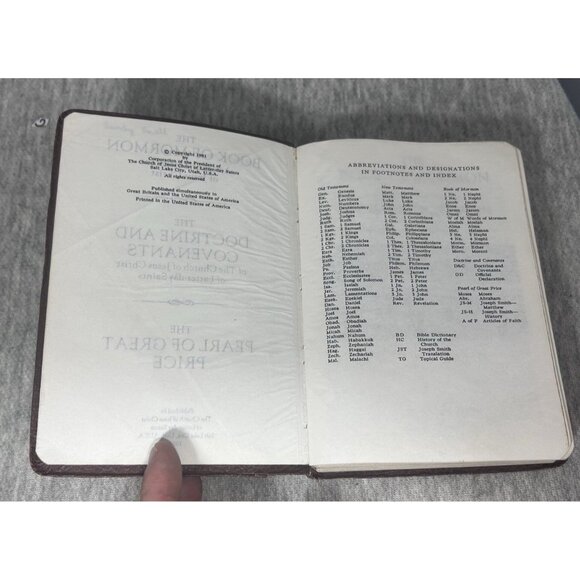 © Copyright 1981
by
Corporation of the President of
The Church of Jesus Christ of Latter-day Saints
Salt Lake City, Utah, U.S.A.
All rights reserved
Published simultaneously in
Great Britain and the United States of America
Printed in the United States of America
ABBREVIATIONS AND DESIGNATIONS
IN FOOTNOTES AND INDEX
Old Testament New Testament Book of Mormon
Gen. Genesis Matt. Matthew 1 Ne. 1 Nephi
Ex. Exodus Mark Mark 2 Ne. 2 Nephi
Lev. Leviticus Luke Luke Jacob Jacob
Num. Numbers John John Enos Enos
Deut. Deuteronomy Acts Acts Jarom Jarom
Josh. Joshua Rom. Romans Omni Omni
Judg. Judges 1 Cor. 1 Corinthians W of M Words of Mormon
Ruth Ruth 2 Cor. 2 Corinthians Mosiah Mosiah
1 Sam. 1 Samuel Gal. Galatians Alma Alma
2 Sam. 2 Samuel Eph. Ephesians Hel. Helaman
1 Kgs. 1 Kings Philip. Philippians 3 Ne. 3 Nephi
2 Kgs. 2 Kings Col. Colossians 4 Ne. 4 Nephi
1 Chr. 1 Chronicles 1 Thes. 1 Thessalonians Morm. Mormon
2 Chr. 2 Chronicles 2 Thes. 2 Thessalonians Ether Ether
Ezra Ezra 1 Tim. 1 Timothy Moro. Moroni
Neh. Nehemiah 2 Tim. 2 Timothy
Esth. Esther Titus Titus Doctrine and Covenants
Job Job Philem. Philemon D&C Doctrine and
Ps. Psalms Heb. Hebrews Covenants
Prov. Proverbs James James OD Official
Eccl. Ecclesiastes 1 Pet. 1 Peter Declaration
Song Song of Solomon 2 Pet. 2 Peter
Isa. Isaiah 1 Jn. 1 John Pearl of Great Price
Jer. Jeremiah 2 Jn. 2 John Moses Moses
Lam. Lamentations 3 Jn. 3 John Abr. Abraham
Ezek. Ezekiel Jude Jude JS-M Joseph Smith—
Dan. Daniel Rev. Revelation Matthew
Hosea Hosea JS-H Joseph Smith—
Joel Joel History
Amos Amos A of F Articles of Faith
Obad. Obadiah
Jonah Jonah
Micah Micah
Nahum Nahum BD Bible Dictionary
Hab. Habakkuk HC History of the
Zeph. Zephaniah Church
Hag. Haggai JST Joseph Smith
Zech. Zechariah Translation
Mal. Malachi TG Topical Guide